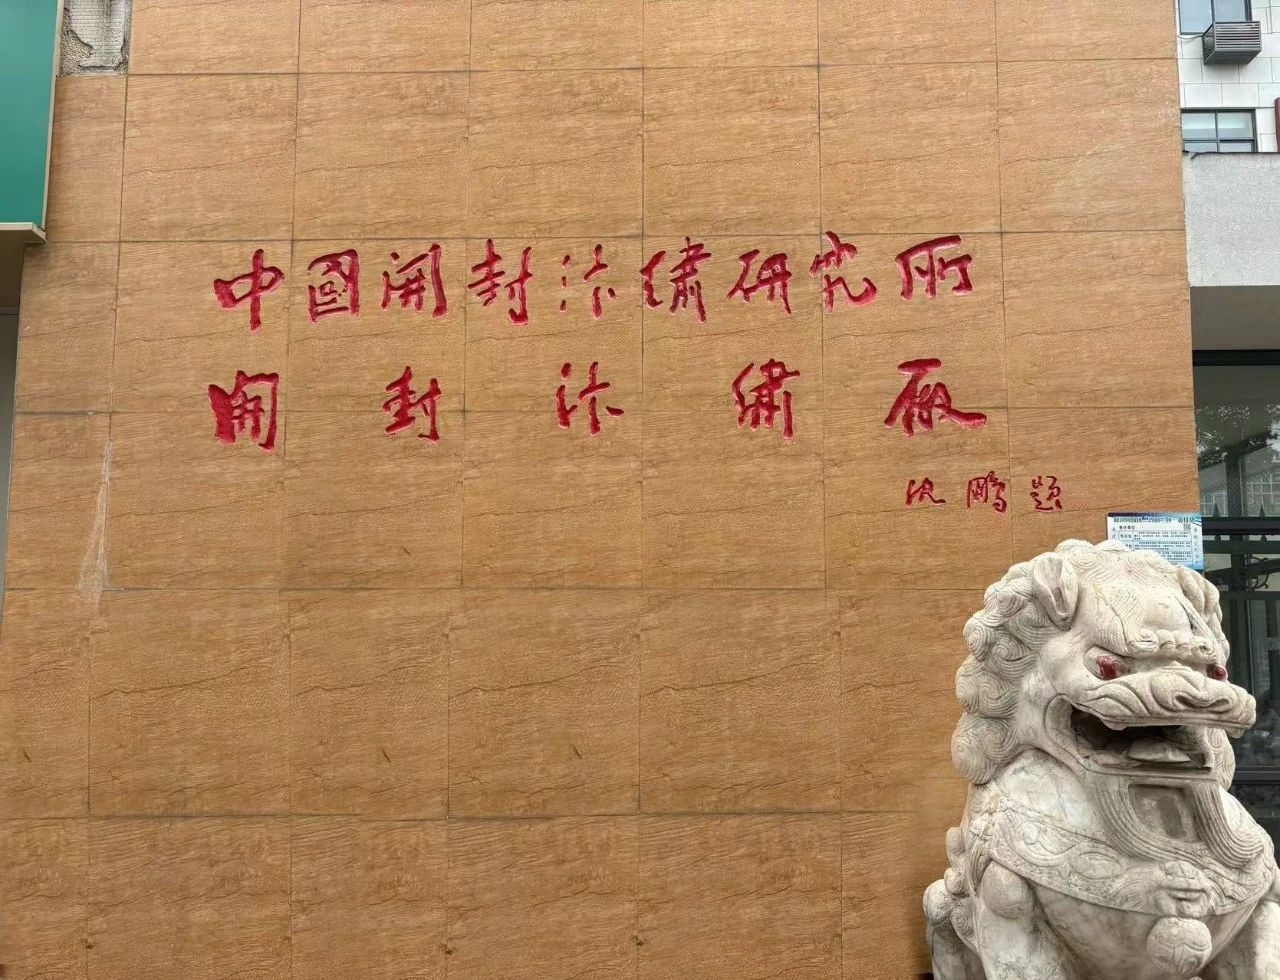 中國開封汴繡研究所
開封汴繡廠
沈鹏題